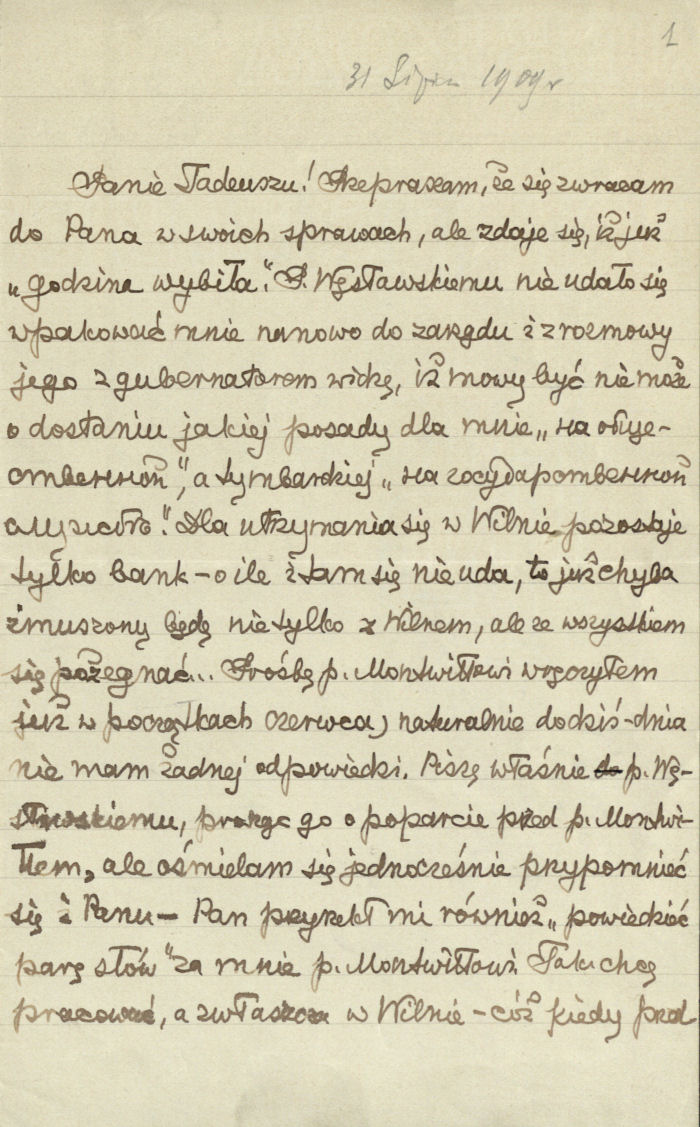 1
31 Lipca 1909 r
Panie Tadeuszu! Przepraszam, że się zwracam
do Pana w swoich sprawach, ale zdaje się, iż już
„godzina wybiła". P. Węsławskiemu nie udało się
wpakować mnie nanowo do zarządu i z rozmowy
jego z gubernatorem widzę, iż mowy być nie może
o dostaniu jakiej posady dla mnie „на обще-
ственной", a tymbardziej „на государственной
службѣ". Dla utrzymania się w Wilnie pozostaje
tylko bank – o ile i tam się nie uda, to już chyba
zmuszony będę nie tylko z Wilnem, ale ze wszystkiem
się pożegnać... Prośbę p. Montwiłłowi wręczyłem
już w początkach czerwca, naturalnie do dziś-dnia
nie mam żadnej odpowiedzi. Piszę właśnie do p. Wę-
sławskiemu, prosząc go o poparcie przed p. Montwi-
łłem, ale ośmielam się jednocześnie przypomnieć
się i Panu – Pan przyrzekł mi również „powiedzieć
parę słów" za mnie p. Montwiłłowi. Tak chcę
pracować, a zwłaszcza w Wilnie – cóż kiedy przed